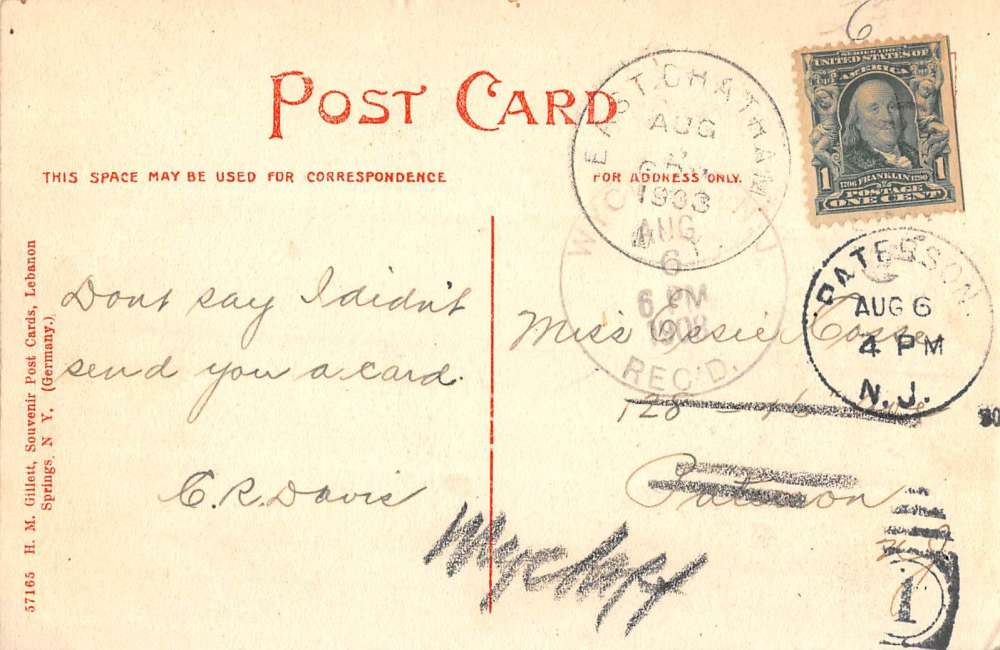 6
POST CARD
THIS SPACE MAY BE USED FOR CORRESPONDENCE
FOR ADDRESS ONLY.
SERIES 1902
UNITED STATES OF
AMERICA
1 1
1706 FRANKLIN 1790
POSTAGE
ONE CENT
EAST CHATHAM
AUG
AUG
6
6 PM
1908
REC'D.
PATERSON
AUG 6
4 PM
N.J.
Dont say I didn't
send you a card.
C. R. Davis
Miss Essie
128 - 16
Paterson
N J
Wyckoff
1
57165 H. M. Gillett, Souvenir Post Cards, Lebanon
Springs, N. Y. (Germany.)